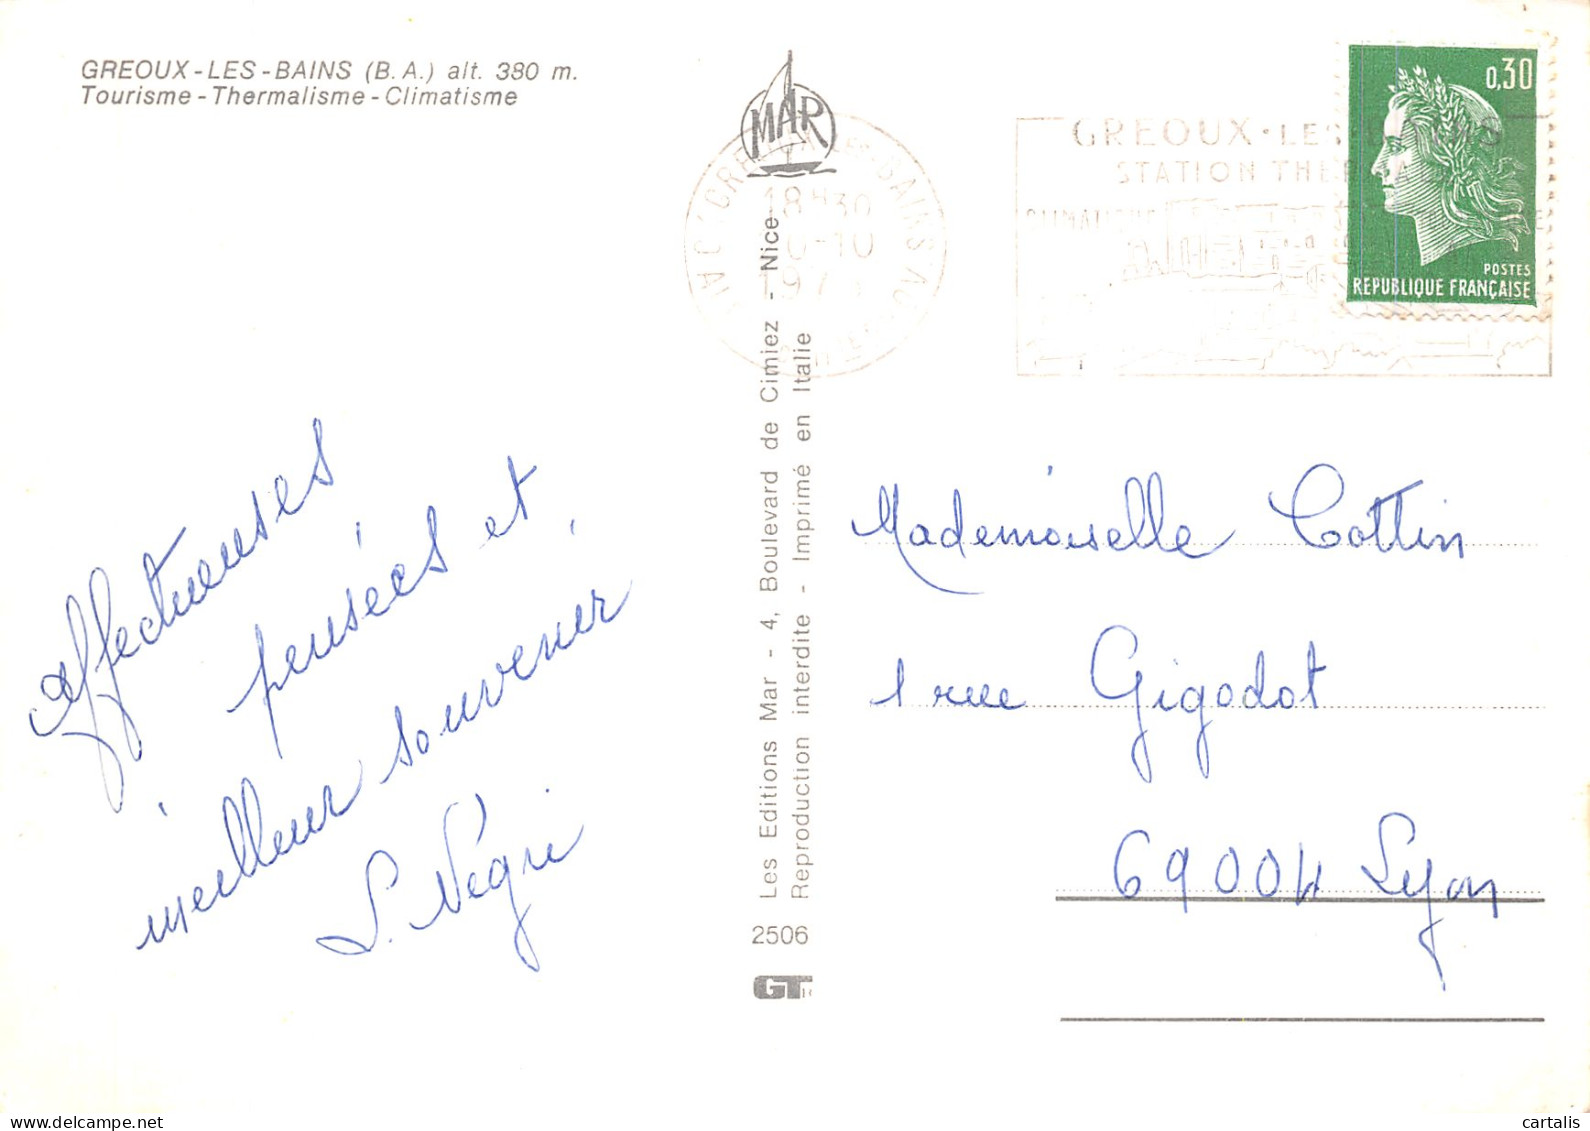 GREOUX-LES-BAINS (B.A.) alt. 380 m.
Tourisme-Thermalisme-Climatisme
affectueuses
pensées et
meilleur souvenir
S. Négri
MAR
Les Editions Mar - 4, Boulevard de Cimiez - Nice
Reproduction interdite - Imprimé en Italie
2506
GT
18H30
GREOUX-LES-BAINS
STATION THERMALE
0,30
POSTES
REPUBLIQUE FRANÇAISE
Mademoiselle Cottin
1 rue Gigodot
69004 Lyon
cartalis
© delcampe.net